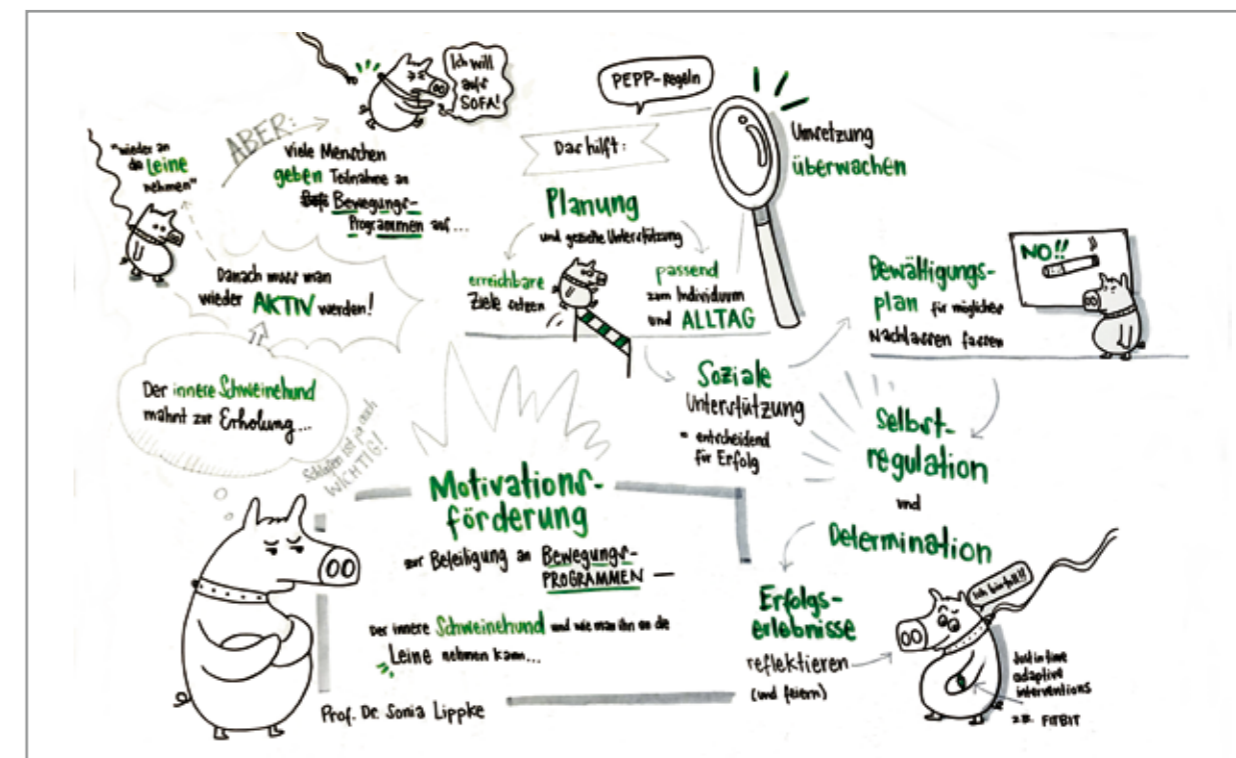 Motivations-
förderung
zur Beteiligung an Bewegungs-
PROGRAMMEN —
Der innere Schweinehund und wie man ihn an die
Leine nehmen kann...
Prof. Dr. Sonia Lippke
Schlafen ist ja auch
WICHTIG!
Der innere Schweinehund
mahnt zur Erholung...
Danach muss man
wieder AKTIV werden!
"wieder an
die Leine
nehmen"
ABER:
Viele Menschen
geben Teilnahme an
Bewegungs-
Programmen auf...
Ich will
aufs
SOFA!
PEPP-Regeln
Das hilft:
Planung
und gezielte Unterstützung
erreichbare
Ziele setzen
passend
zum Individuum
und ALLTAG
Umsetzung
überwachen
Soziale
Unterstützung
= entscheidend
für Erfolg
Bewältigungs-
plan für mögliches
Nachlassen fassen
NO!!
Selbst-
regulation
und
Determination
Erfolgs-
erlebnisse
reflektieren
(und feiern)
Ich bin toll!!
Just in time
adaptive
interventions
z.B. FITBIT